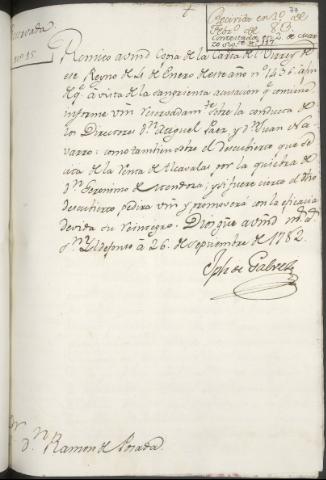 Reservada
nº 15
73
Recivida en 1º de
Febrº de 83.
Contextada en 2 de
nº 117
Remito a vmd Copia de la Carta del Virrey de
ese Reyno de 4 de Enero de este año nº 1436. a fin
de qe a vista de la sangrienta acusacion qe comuni
informe vm reservadamte sobre la conducta de
los Directores Dn Miguel Paez y Dn Juan Na-
varro: como tambien sobre el descubierto que se
de la Renta de Alcavalas por la quiebra de
Dn Geronimo de Mendoza; y si fuere cierto el dho
descubierto pedirá vm y promoverá con la eficacia
devida su reintegro. Dios gue a vmd ms as
Sn Yldefonso à 26. de Septiembre de 1782.
Jph de Galvez
Sor Dn Ramon de Posada.